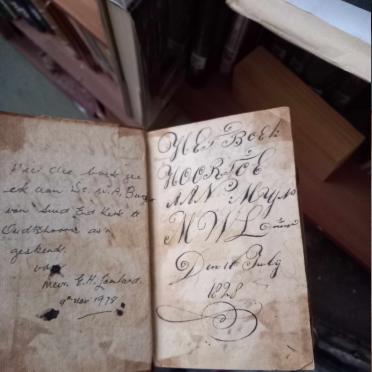 Hier die boek gee
ek aan Ds. W.A. Burger
van Suid Ost Kerk te
Oudtshoorn as 'n
geskenk.
van
Mevr. E.H. Lombard.
9de Nov 1978
Het Boek
HOORT TOE
AAN MyNo
M W L
Den 10 July
1828